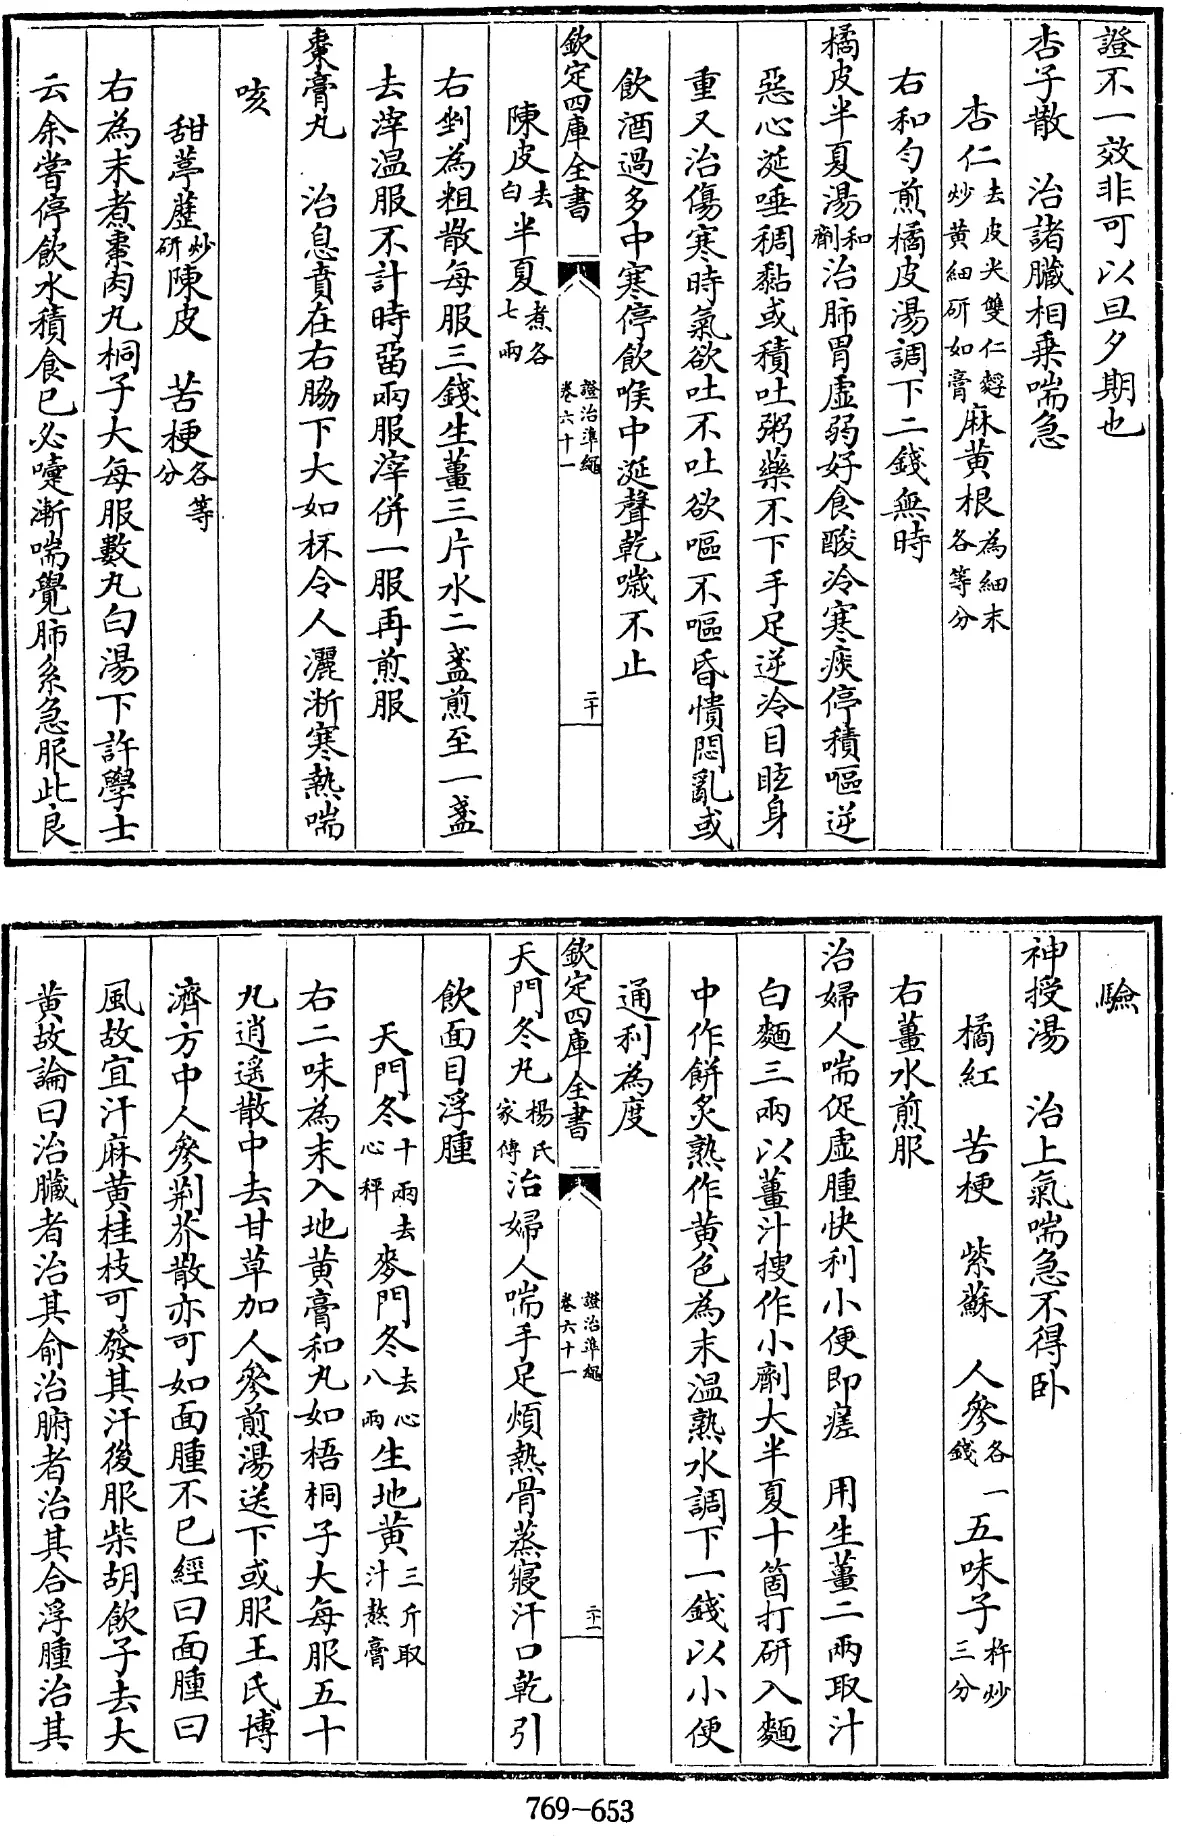 證不一效非可以旦夕期也
杏子散　治諸臟相乗喘急
杏仁去皮尖雙仁麩炒黄細研如膏麻黄根為細末各等分
右和勻煎橘皮湯調下二錢無時
橘皮半夏湯和劑治肺胃虚弱好食酸冷寒痰停積嘔逆
惡心涎唾稠黏或積吐粥藥不下手足逆冷目眩身
重又治傷寒時氣欲吐不吐欲嘔不嘔昏憒悶亂或
飲酒過多中寒停飲喉中涎聲乾噦不止
欽定四庫全書　證治準繩卷六十一　二十
陳皮去白半夏煮各七兩
右剉為粗散每服三錢生薑三片水二盞煎至一盞
去滓温服不計時留兩服滓併一服再煎服
棗膏丸　治息賁在右脇下大如杯令人灑淅寒熱喘
咳
甜葶藶炒研陳皮　苦梗各等分
右為末煮棗肉丸桐子大每服數丸白湯下許學士
云余嘗停飲水積食已必嚏漸喘覺肺系急服此良
驗
神授湯　治上氣喘急不得卧
橘紅　苦梗　紫蘇　人參各一錢五味子杵炒三分
右薑水煎服
治婦人喘促虚腫快利小便即瘥　用生薑二兩取汁
白麵三兩以薑汁搜作小劑大半夏十箇打研入麵
中作餅炙熟作黄色為末温熟水調下一錢以小便
通利為度
欽定四庫全書　證治準繩卷六十一　二十一
天門冬丸楊氏家傳治婦人喘手足煩熱骨蒸寢汗口乾引
飲面目浮腫
天門冬十兩去心秤麥門冬去心八兩生地黄三斤取汁熬膏
右二味為末入地黄膏和丸如梧桐子大每服五十
丸逍遥散中去甘草加人參煎湯送下或服王氏博
濟方中人參荆芥散亦可如面腫不已經曰面腫曰
風故宜汗麻黄桂枝可發其汗後服柴胡飲子去大
黄故論曰治臟者治其俞治腑者治其合浮腫治其
769-653